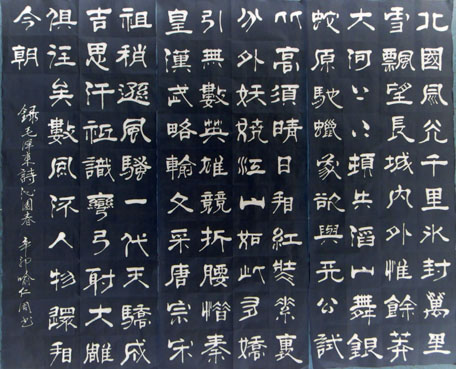 北國風光千里冰封萬里
雪飄望長城内外惟餘莽
大河上下頓失滔山舞銀
蛇原馳蠟象欲與天公試
比高須晴日看紅裝素裹
分外妖嬈江山如此多嬌
引無數英雄競折腰惜秦
皇漢武略輸文采唐宗宋
祖稍遜風騷一代天驕成
吉思汗祗識彎弓射大雕
俱往矣數風流人物還看
今朝
録毛澤東詩沁園春 辛卯